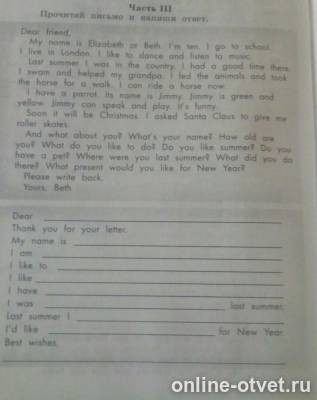 Часть III
Прочитай письмо и напиши ответ.
Dear friend,
My name is Elizabeth or Beth. I'm ten. I go to school.
I live in London. I like to dance and listen to music.
Last summer I was in the country. I had a good time there.
I swam and helped my grandpa. I fed the animals and took
the horse for a walk. I can ride a horse now.
I have a parrot. Its name is Jimmy. Jimmy is green and
yellow. Jimmy can speak and play. It's funny.
Soon it will be Christmas. I asked Santa Claus to give me
roller skates.
And what about you? What's your name? How old are
you? What do you like to do? Do you like summer? Do you
have a pet? Where were you last summer? What did you do
there? What present would you like for New Year?
Please write back.
Yours, Beth
Dear
Thank you for your letter.
My name is
I am
I like to
I like
I have
I was last summer.
Last summer I
I'd like for New Year.
Best wishes,
online-otvet.ru